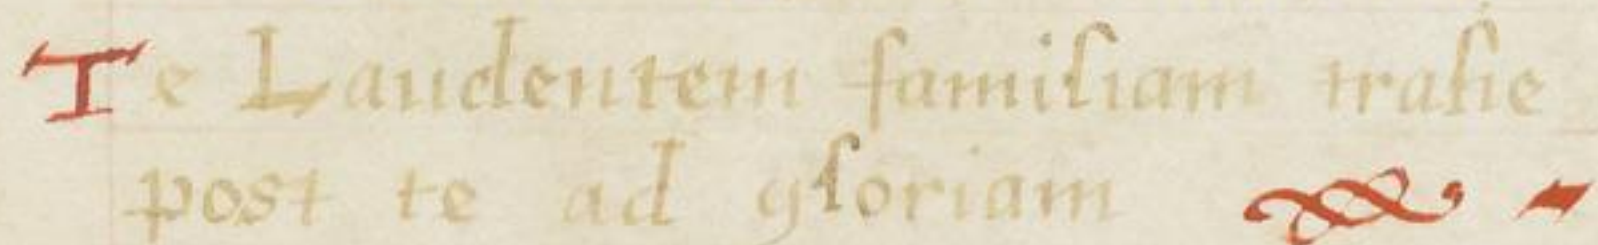 Te Laudentem familiam trahe
post te ad gloriam